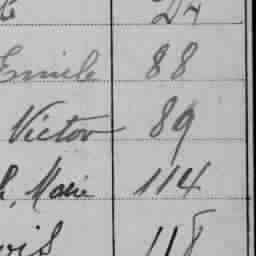 Emile 88
Victor 89
Marie 114
118